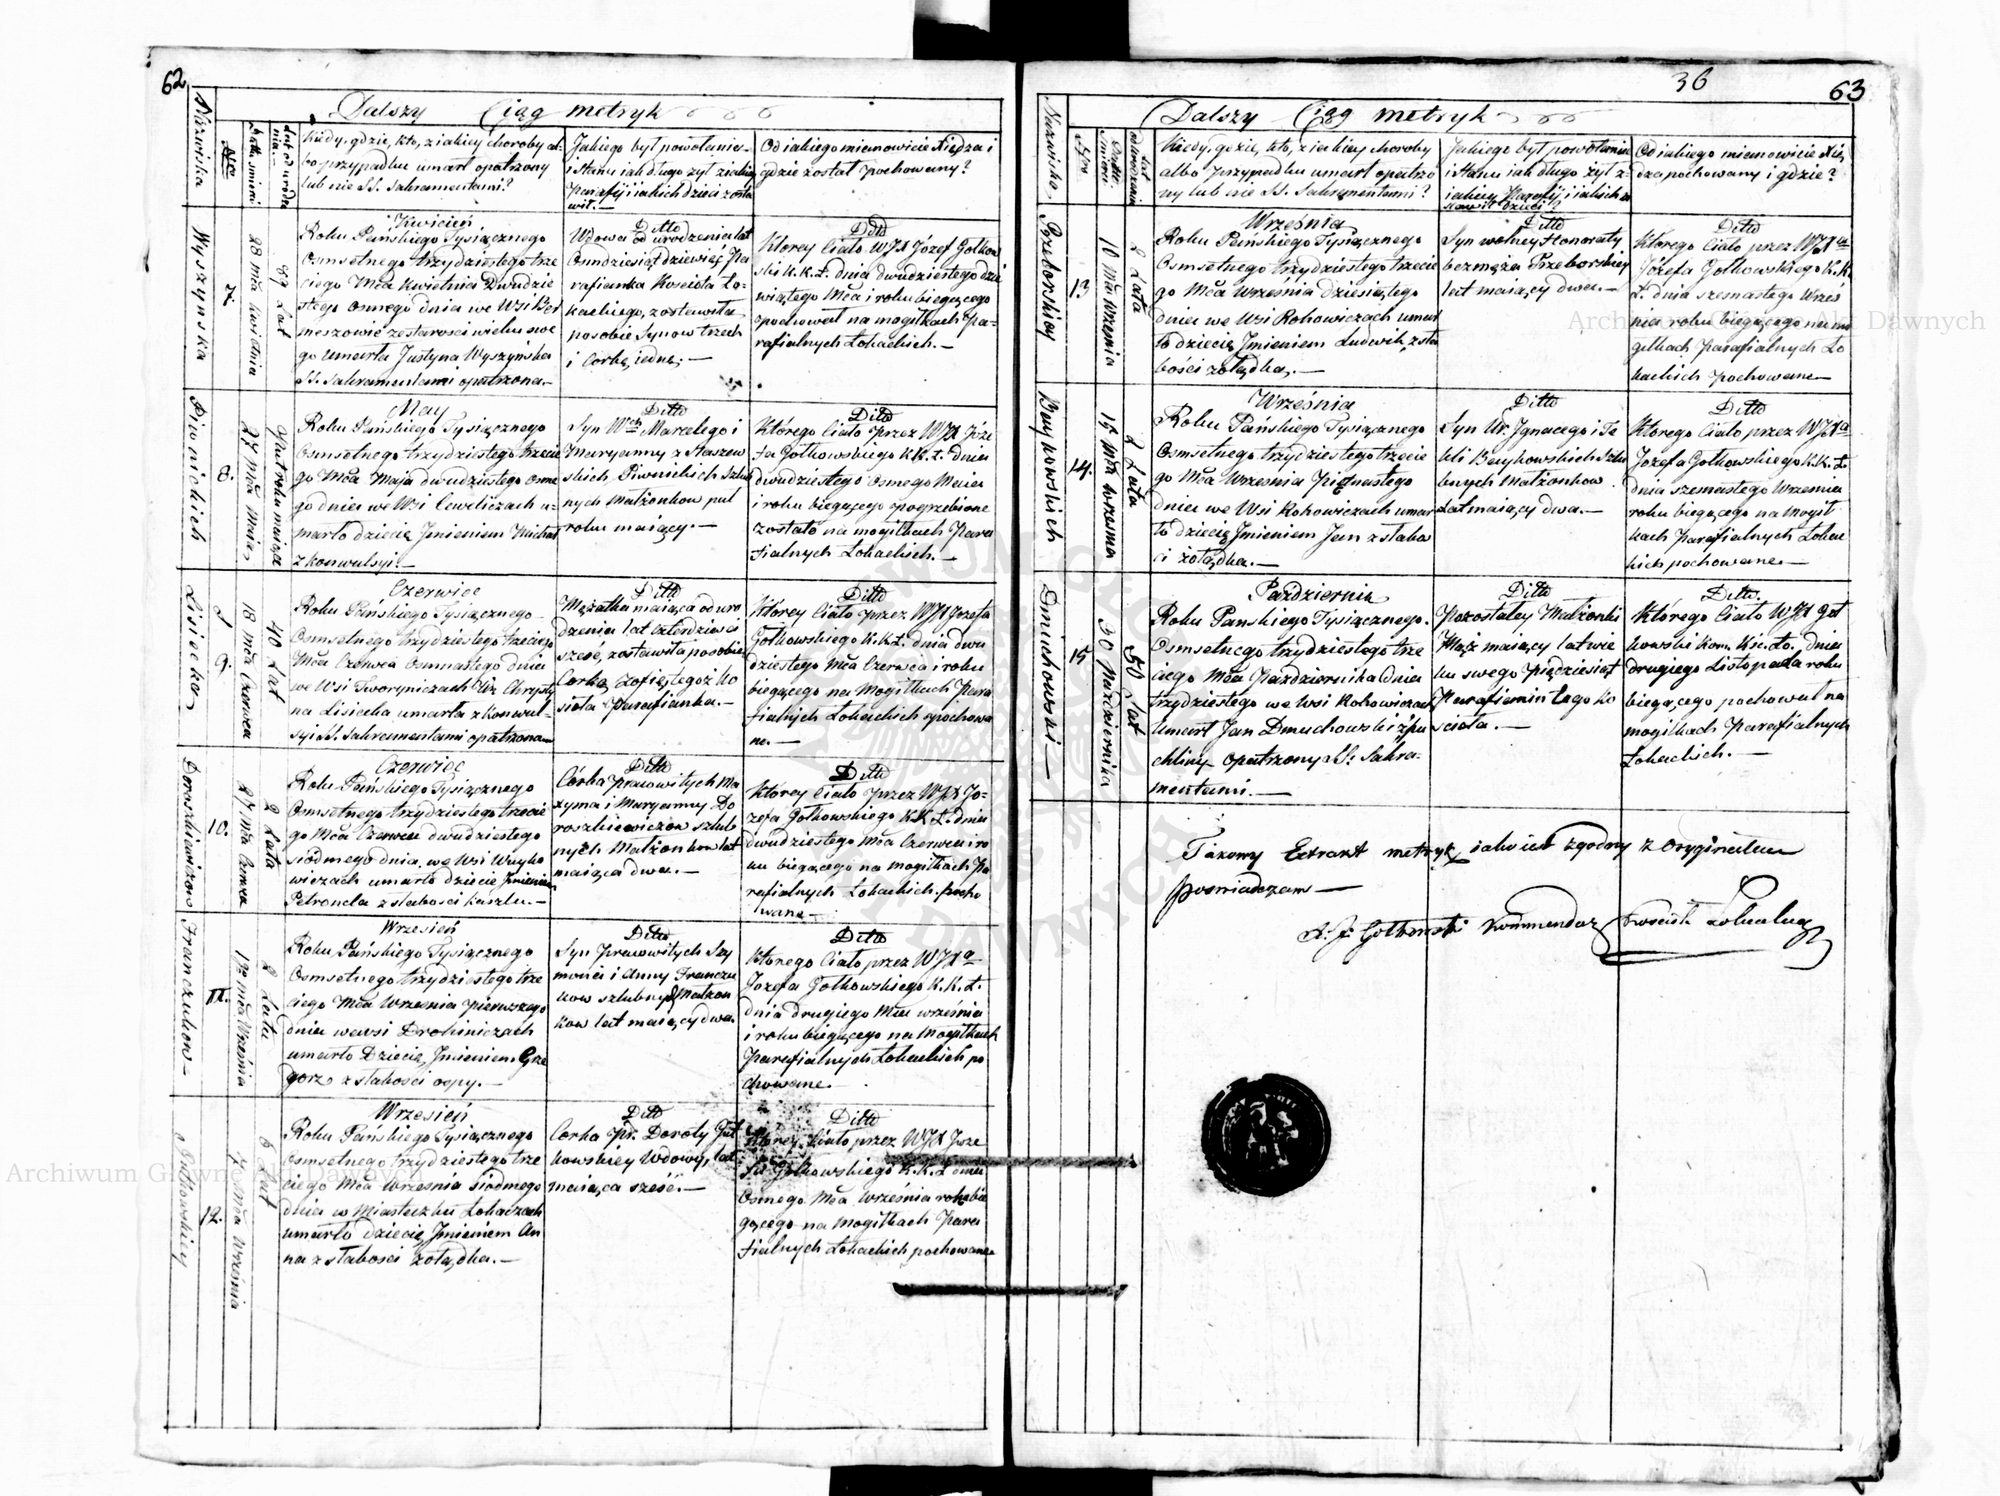 62
Dalszy Ciąg metryk
Nazwiska
Nro
Data śmierci
Lat od urodzenia
Kiedy, gdzie, kto, z iakiey choroby al-
bo przypadku umarł opatrzony
lub nie SS. Sakramentami?
Jakiego był powołania
i stanu iak długo żył z iakiey
Parafij i iakich dzieci zosta
wił.—
Od iakiego mianowicie Xiędza i
gdzie został pochowany?
Wyszyńska
7.
28 mca Kwietnia
89 Lat
Kwiecień
Roku Pańskiego Tysiącznego
Osmsetnego trzydziestego trze
ciego Mca Kwietnia Dwudzie
stego osmego dnia we Wsi
ze starości wieku swe
go umarła Justyna Wyszyńska
SS. Sakramentami opatrzona.—
Ditto
Wdowa od urodzenia lat
Osmdziesiąt dziewięć Pa
rafianka Kościoła Ło-
kackiego, zostawiła
po sobie Synow trzech
i Corkę iednę.—
Ditto
Ktorey Ciało WJX Józef Gołkow
ski K.K.Ł. dnia dwudziestego dzie
wiątego Mca i roku biegącego
pochował na mogiłkach Pa-
rafialnych Łokackich.—
Piwnickich
8.
28 mca Maia
Puł roku maiące
May
Roku Pańskiego Tysiącznego
Osmsetnego trzydziestego trzecie
go Mca Maja dwudziestego osme
go dnia we Wsi Cewliczach u-
marło dziecię Jmieniem Michał
z konwulsyi.—
Ditto
Syn Wch Marcelego i
Maryanny z Staszew
skich Piwnickich Szlub
nych Małżonkow puł
roku maiący.—
Ditto
Którego Ciało przez WJX Józe
fa Gołkowskiego K.K.Ł. dnia
dwudziestego osmego Maia
i roku biegącego pogrzebione
zostało na mogiłkach Para
fialnych Łokackich.—
Lisiecka
9.
18 mca Czerwca
40 Lat
Czerwiec
Roku Pańskiego Tysiącznego
Osmsetnego trzydziestego trzeciego
Mca Czerwca Osmnastego dnia
we Wsi Tworyniczach Wż Chrysty
na Lisiecka umarła z konwul-
syi SS. Sakramentami opatrzona—
Ditto
Mężatka maiąca od uro
dzenia lat czterdzieści
sześć, zostawiła po sobie
Corkę Zofię, tegoż Ko
scioła Parafianka.—
Ditto
Którey Ciało przez WJX Jozefa
Gołkowskiego K.K.Ł. dnia dwu
dziestego Mca Czerwca i roku
biegącego na Mogiłkach Para
fialnych Łokackich pochowa
ne.—
Doroszkiewiczow
10.
27 mca Czerwca
2 Lata
Czerwiec
Roku Pańskiego Tysiącznego
Osmsetnego trzydziestego trzecie
go Mca Czerwca dwudziestego
siódmego dnia, we Wsi Wuyko
wiczach umarło dziecie Jmieniem
Petronela z słabości kaszlu.—
Ditto
Córka Pracowitych Ma
xyma i Maryanny Do
roszkiewiczow szlub
nych Małżonkow lat
maiąca dwa.—
Ditto
Ktorey Ciało przez WJX Jo-
zefa Gołkowskiego K.K.Ł. dnia
dwudziestego Mca Czerwca i ro
ku biegącego na mogiłkach Pa
rafialnych Łokackich pocho
wane—
Franczukow
11.
1go mca Września
2 Lata
Wrzesień
Roku Pańskiego Tysiącznego
Osmsetnego trzydziestego trze
ciego Mca Września pierwszego
dnia we wsi Drohiniczach
umarło Dziecię Jmieniem Grze
gorz z słabości ospy.—
Ditto
Syn Pracowitych Szy
mona i Anny Franczu
kow szlubnych Małżon
kow lat maiący dwa.
Ditto
Ktorego Ciało przez WJXa
Jozefa Gołkowskiego K.K.Ł.
dnia drugiego Mca września
i roku biegącego na mogiłkach
Parafialnych Łokackich po
chowane.
Gutkowskiey
12.
7 mca Września
6 Lat
Wrzesień
Roku Pańskiego Tysiącznego
Osmsetnego trzydziestego trze
ciego Mca Września siodmego
dnia w Miasteczku Łokaczach
umarło dziecię Jmieniem An
na z słabości żołądka.—
Ditto
Corka Pr. Doroty Gut
kowskiey Wdowy, lat
maiąca sześć.—
Ditto
Ktorey Ciało przez WJX Joze
fa Gołkowskiego K.K.Ł. dnia
Osmego Mca Września roku bie
gącego na mogiłkach Para
fialnych Łokackich pochowane
36
63
Dalszy Ciąg metryk
Nazwisko
Nro
Data śmierci
Lat od urodzenia
Kiedy, gdzie, kto, z iakiey choroby
albo przypadku umarł opatrzo
ny lub nie SS. Sakramentami?
Jakiego był powołania
i stanu iak długo żył z
iakiey Parafij i iakich zo
stawił dzieci?
Od iakiego mianowicie Xię
dza pochowany i gdzie?
Przeborskiey
13
10 mca Września
2 Lata
Września
Roku Pańskiego Tysiącznego
Osmsetnego trzydziestego trzecie
go Mca Września dziesiątego
dnia we Wsi Kohowiczach umar
ło dziecię Jmieniem Ludwik, z sła
bości żołądka.—
Ditto
Syn wolney Honoraty
bez męża Przeborskiey
lat maiący dwa.—
Ditto
Którego Ciało przez WJXa
Józefa Gołkowskiego K.K.
Ł. dnia szesnastego Wrześ
nia roku biegącego na mo
giłkach Parafialnych Ło
kackich pochowane—
Barykowskich
14.
15 mca wrzesnia
2 Lata
Września
Roku Pańskiego Tysiącznego
Osmsetnego trzydziestego trzecie
go Mca Września Piętnastego
dnia we Wsi Kohowiczach umar
ło dziecię Jmieniem Jan z słaboś
ci żołądka.—
Ditto
Syn Ur. Jgnacego i Te
kli Barykowskich Szlu
bnych Małżonkow
Lat maiący dwa.—
Ditto
Którego Ciało przez WJXa
Jozefa Gołkowskiego K.K.Ł.
dnia szesnastego Wrzesnia
roku biegącego na mogił
kach Parafialnych Łokac
kich pochowane—
Dmuchowski—
15
30 Pazdziernika
50 Lat
Październik
Roku Panskiego Tysiącznego
Osmsetnego trzydziestego trze
ciego Mca Października dnia
trzydziestego we Wsi Kohowiczach
Umarł Jan Dmuchowski z pu
chliny opatrzony SS. Sakra-
mentami.—
Ditto
Pozostałey Małżonki
Mąż maiący lat wie
ku swego pięćdziesiąt
Parafianin tego Ko
ścioła.—
Ditto.
Którego Ciało WJX Goł
kowski Kom. Koś. Ło. dnia
drugiego Listopada roku
biegącego pochował na
mogiłkach Parafialnych
Łokackich.—
Takowy Extrakt metryk iako iest zgodny z Oryginałem
poswiadczam—
X. J. Gołkowski Kommendarz Kościoła Łokackiego
Archiwum Główne Akt Dawnych
Archiwum Główne Akt Dawnych